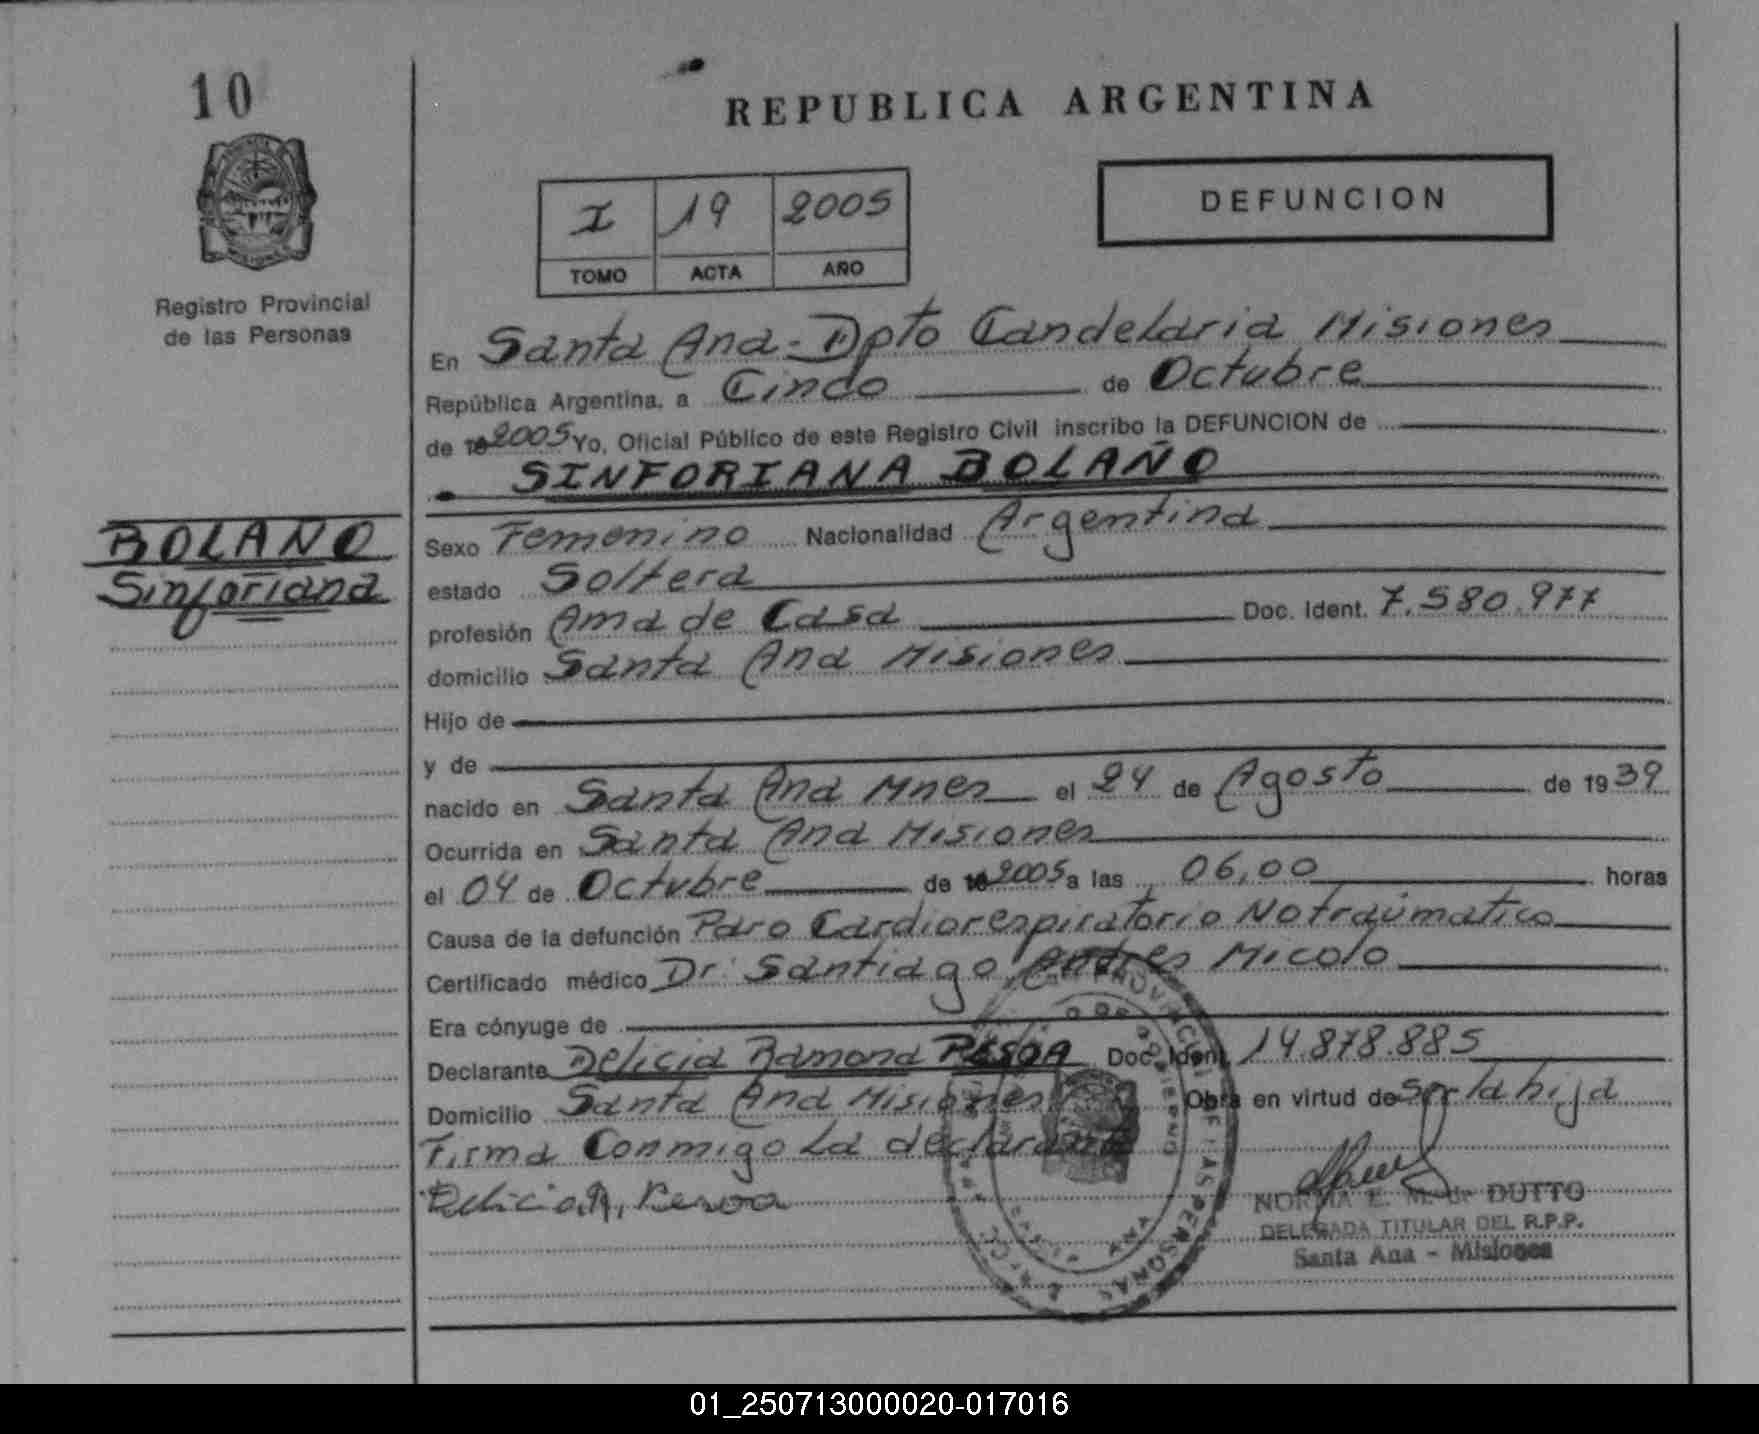 10
REPUBLICA ARGENTINA
I 19 2005
TOMO ACTA AÑO
DEFUNCION
Registro Provincial
de las Personas
En Santa Ana - Dpto Candelaria Misiones
República Argentina, a Cinco de Octubre
de 2005 Yo, Oficial Público de este Registro Civil inscribo la DEFUNCION de
SINFORIANA BOLAÑO
BOLAÑO
Sinforiana
Sexo Femenino Nacionalidad Argentina
estado Soltera
profesión Ama de Casa Doc. Ident. 7.580.977
domicilio Santa Ana Misiones
Hijo de
y de
nacido en Santa Ana Mnes el 24 de Agosto de 1939
Ocurrida en Santa Ana Misiones
el 04 de Octubre de 2005 a las 06,00 horas
Causa de la defunción Paro Cardiorespiratorio No traumatico
Certificado médico Dr. Santiago Andres Micolo
Era cónyuge de
Declarante Delicia Ramona PESOA Doc. Ident. 14.878.885
Domicilio Santa Ana Misiones Obra en virtud de ser la hija
Firma Conmigo La declarante
Delicia R. Pesoa
NORMA E. M. de DUTTO
DELEGADA TITULAR DEL R.P.P.
Santa Ana - Misiones
01_250713000020-017016